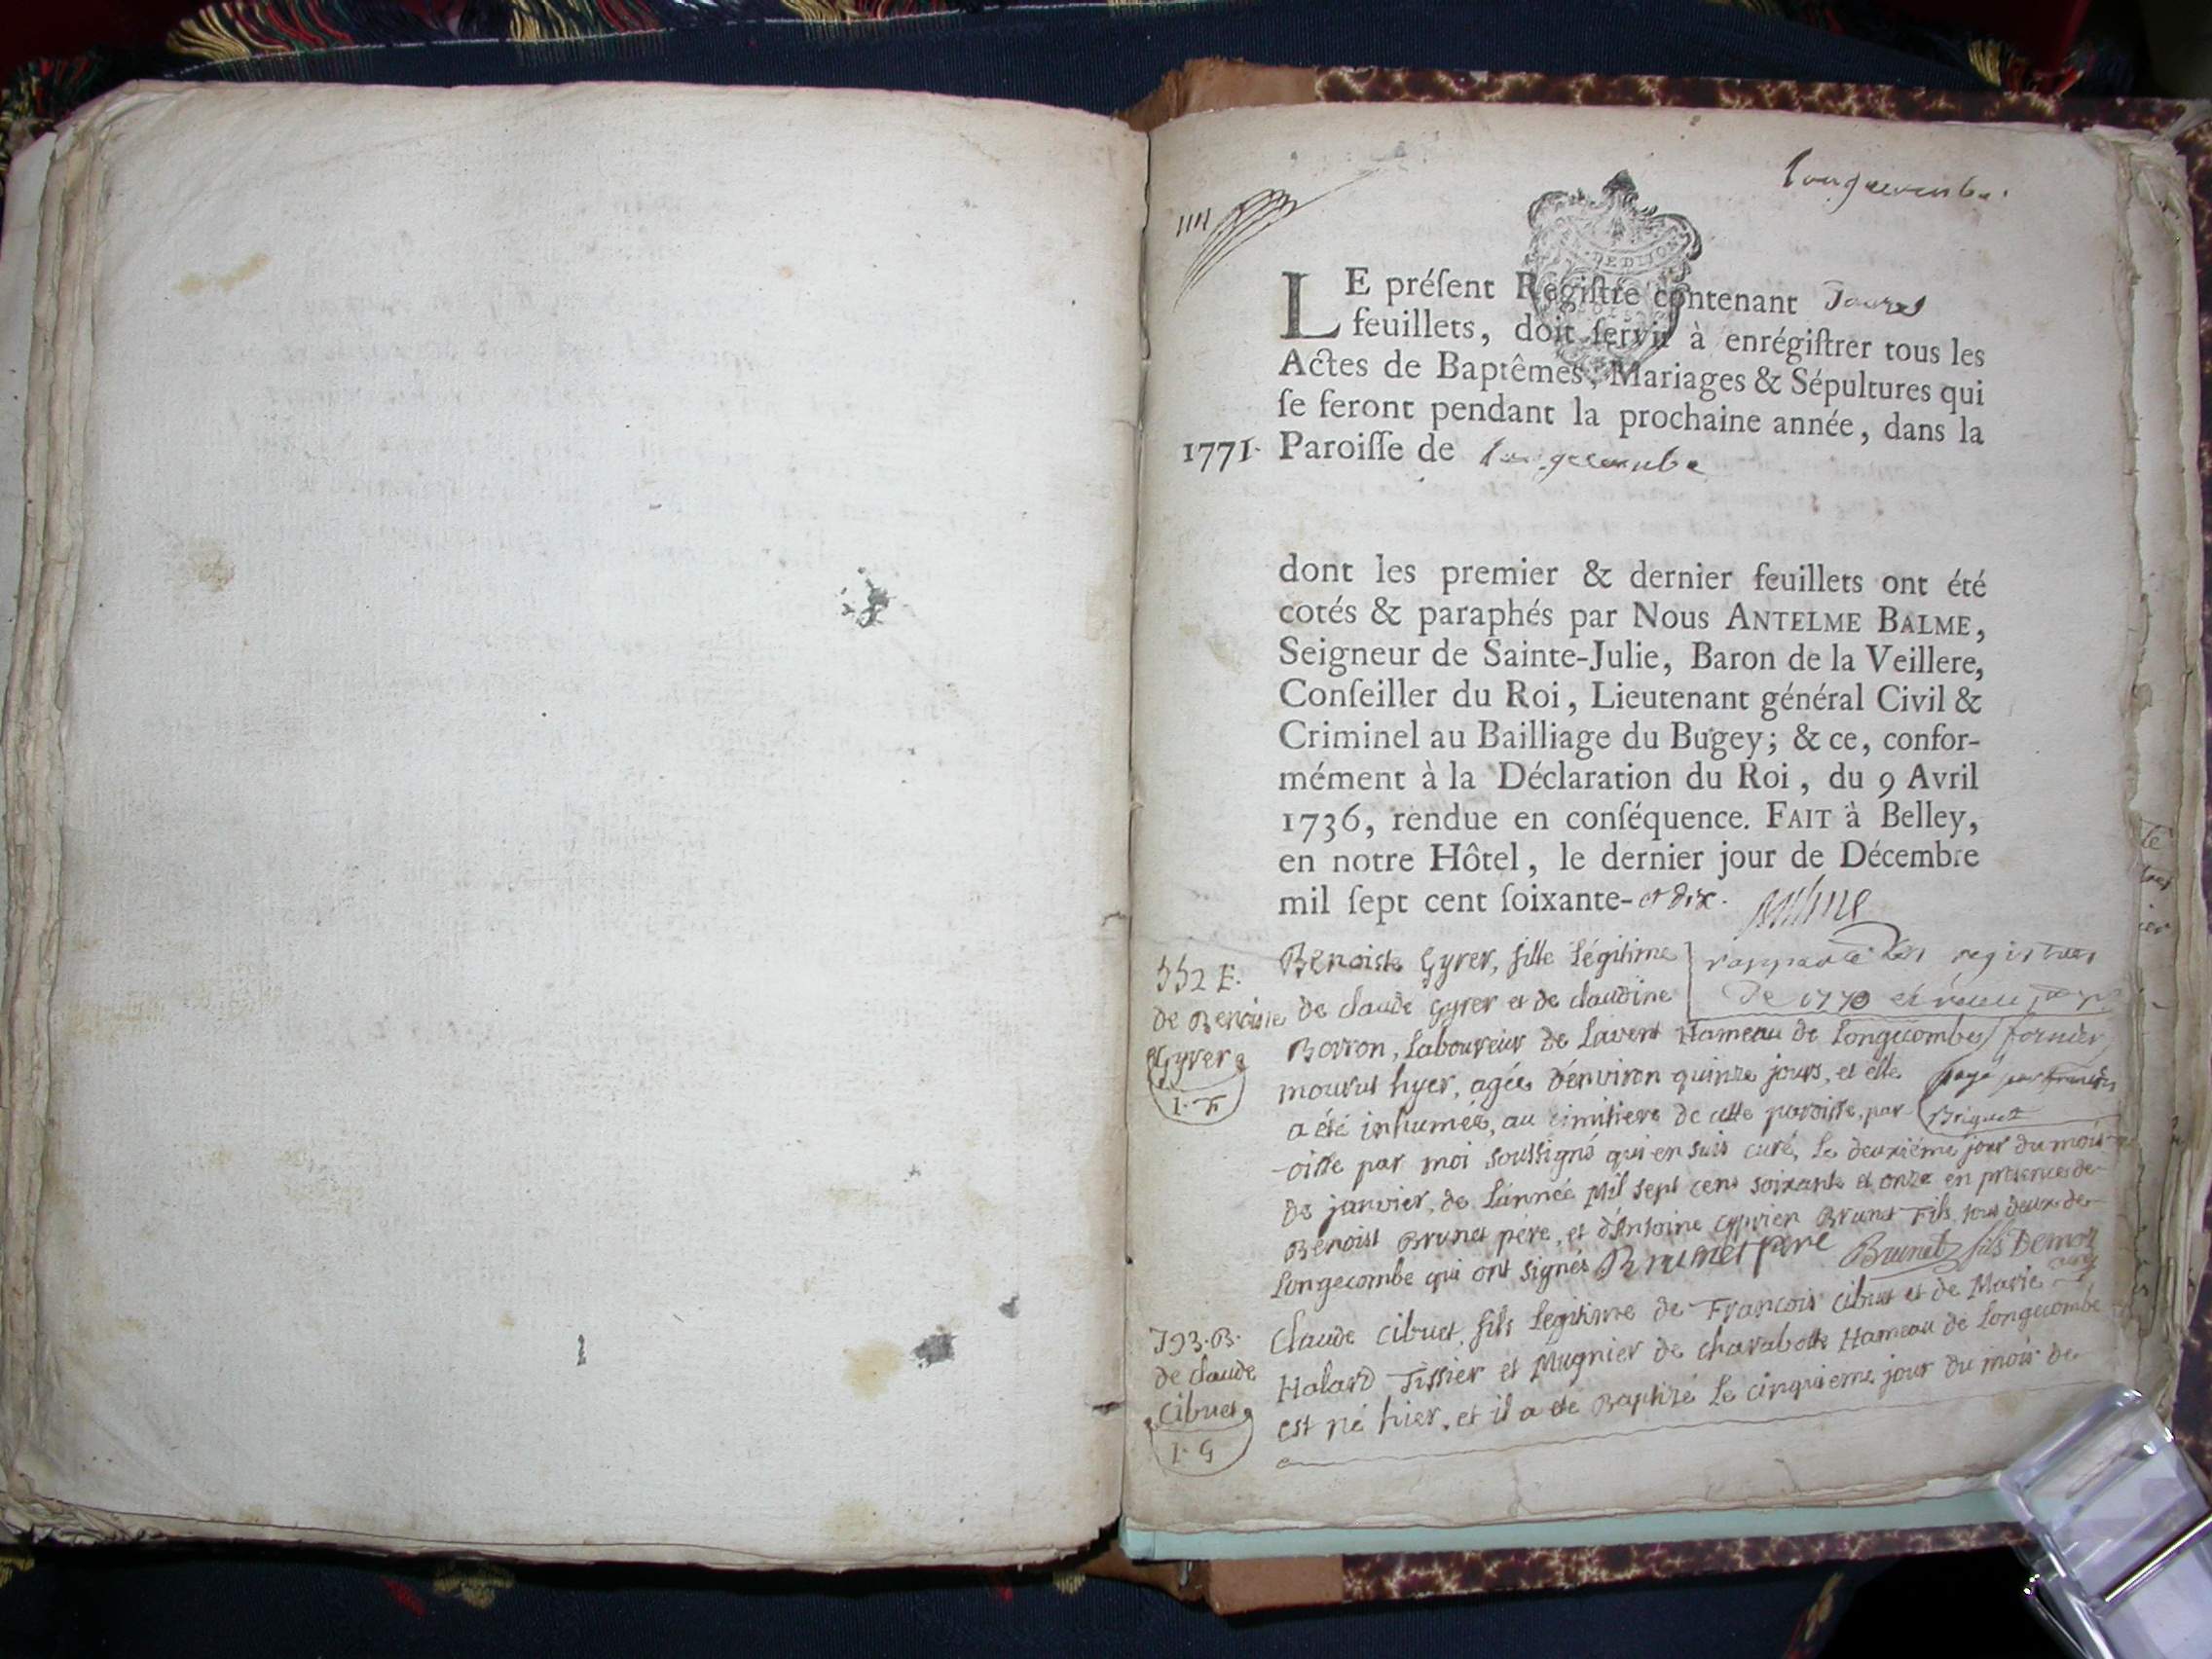 longecombe.
DE DIJON
LE préſent Regiſtre contenant
feuillets, doit ſervir à enrégiſtrer tous les
Actes de Baptêmes, Mariages & Sépultures qui
ſe ſeront pendant la prochaine année, dans la
1771. Paroiſſe de longecombe
dont les premier & dernier feuillets ont été
cotés & paraphés par Nous ANTELME BALME,
Seigneur de Sainte-Julie, Baron de la Veillere,
Conſeiller du Roi, Lieutenant général Civil &
Criminel au Bailliage du Bugey; & ce, confor-
mément à la Déclaration du Roi, du 9 Avril
1736, rendue en conſéquence. FAIT à Belley,
en notre Hôtel, le dernier jour de Décembre
mil ſept cent ſoixante- et dix. Balme
552 E.
de Benoiste
Gyrer
1. F
Benoiste Gyrer, fille légitime
de claude Gyrer et de claudine
Borron, laboureur de Lavent Hameau de Longecombe
mourut hyer, agée d'environ quinze jours, et elle
a été inhumée, au cimitiere de cette paroisse, par
-oisse par moi soussigné qui en suis curé, le deuxiéme jour du mois
de janvier, de l'année Mil sept cens soixante et onze en presence de
Benoist Brunet pére, et d'Antoine cyprien Brunet Fils, tous deux de
Longecombe qui ont signés Brunet pere Brunet fils Demoz
curé
rapporté les registres
De 1770
fornier
payé par
Briquet
793. B.
de claude
Cibuet
1. G
Claude Cibuet, fils legitime de François Cibuet et de Marie
Halard Tissier et Mugnier de charabotte Hameau de Longecombe
est né hier, et il a été Baptizé le cinquieme jour du mois de